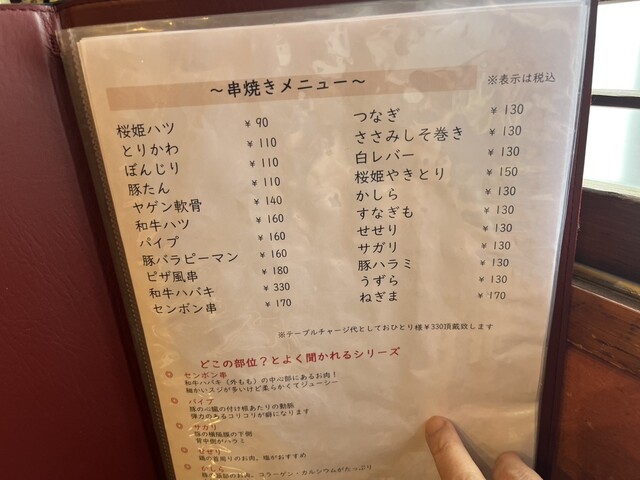 ～串焼きメニュー～
※表示は税込
桜姫ハツ ¥ 90
とりかわ ¥ 110
ぼんじり ¥ 110
豚たん ¥ 110
ヤゲン軟骨 ¥ 140
和牛ハツ ¥ 160
パイプ ¥ 160
豚バラピーマン ¥ 160
ピザ風串 ¥ 180
和牛ハバキ ¥ 330
センボン串 ¥ 170
つなぎ ¥ 130
ささみしそ巻き ¥ 130
白レバー ¥ 130
桜姫やきとり ¥ 150
かしら ¥ 130
すなぎも ¥ 130
せせり ¥ 130
サガリ ¥ 130
豚ハラミ ¥ 130
うずら ¥ 130
ねぎま ¥ 170
※テーブルチャージ代としておひとり様¥330頂戴致します
どこの部位？とよく聞かれるシリーズ
センボン串
和牛ハバキ（外もも）の中心部にあるお肉！
細かいスジが多いけど柔らかくてジューシー
パイプ
豚の心臓の付け根あたりの動脈
弾力のあるコリコリが癖になります
サガリ
豚の横隔膜の下側
背中側がハラミ
せせり
鶏の首周りのお肉、塩がおすすめ
かしら
お肉、コラーゲン・カルシウムがたっぷり